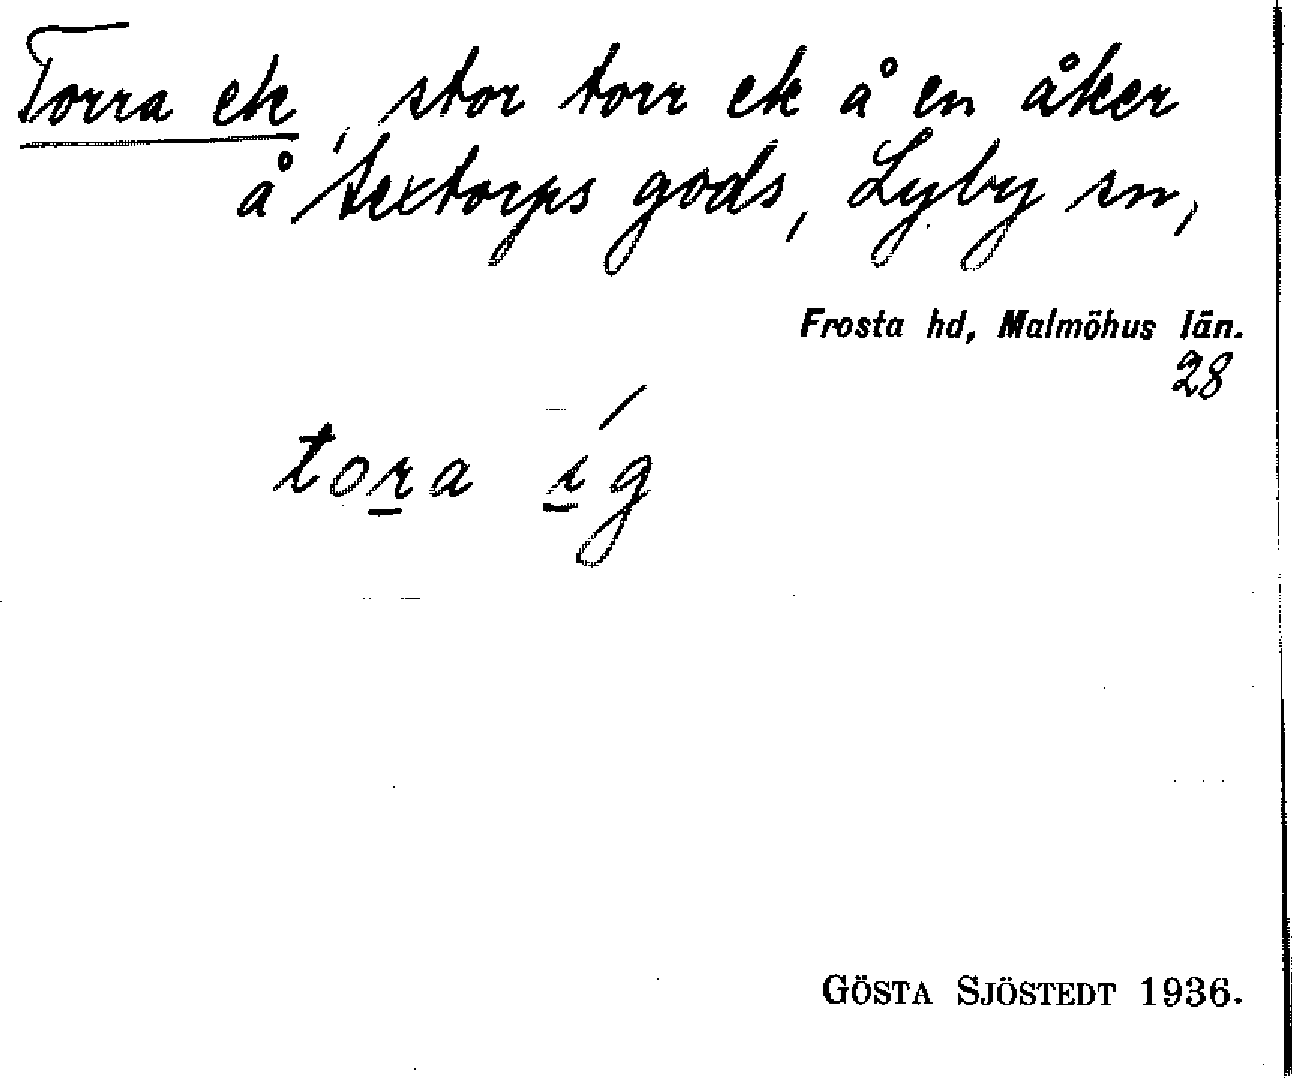 Torra ek, stor torr ek å en åker
å Sextorps gods, Lyby sn,
Frosta hd, Malmöhus län.
28
tora ig
GÖSTA SJÖSTEDT 1936.